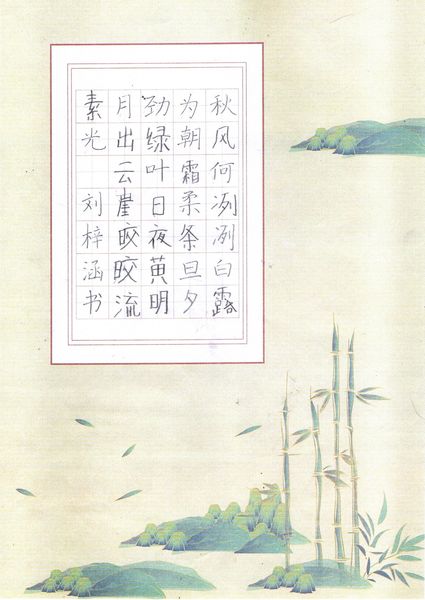 秋风何冽冽白露
为朝霜柔条旦夕
劲绿叶日夜黄明
月出云崖皎皎流
素光 刘梓涵书